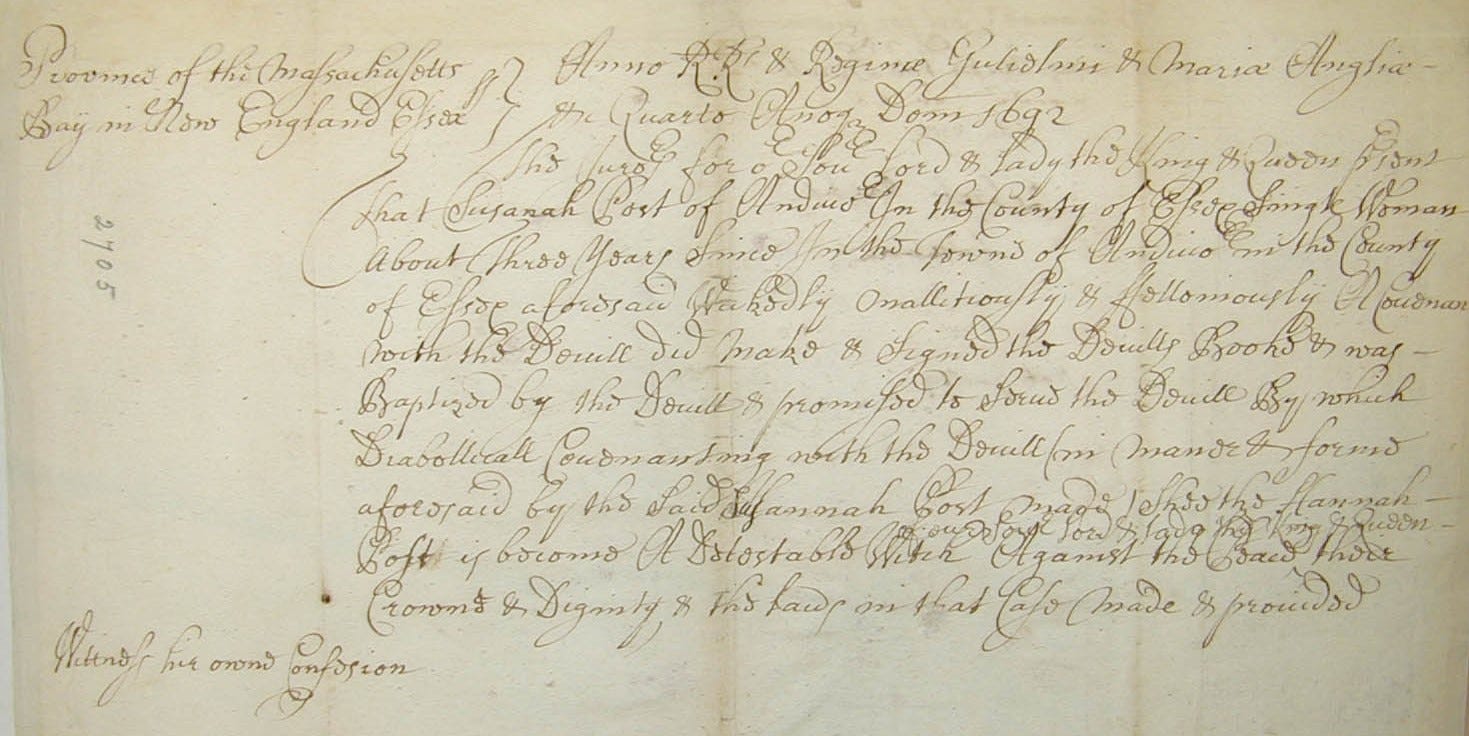 Province of the Massachusetts
Bay in New England Essex
ss
Anno RRs & Reginæ Gulielmi & Mariæ Angliæ -
&c Quarto Anoq Dom 1692
The Juror^s for o^r Sou^e Lord & Lady the King & Queen p^rsent
That Susanah Post of Andivo^r In the County of Essex Single Woman
About Three Years Since In the Towne of Andivo^r in the County
of Essex aforesaid Wickedly mallitiously & ffelloniously A Couenan
with the Deuill did make & Signed the Deuills Booke & was -
Baptized by the Deuill & promised to Serue the Deuill By which
Diabollicall Couenanting with the Deuill (in maner & forme
aforesaid by the Said Susannah Post made) Shee the Hannah -
of our Sou^e Lord & Lady the King & Queen -
Post is become A Detestable Witch Against the Peace their
Crowne & Dignity & the Laws in that Case made & prouided
Wittness her owne Confesion
2705